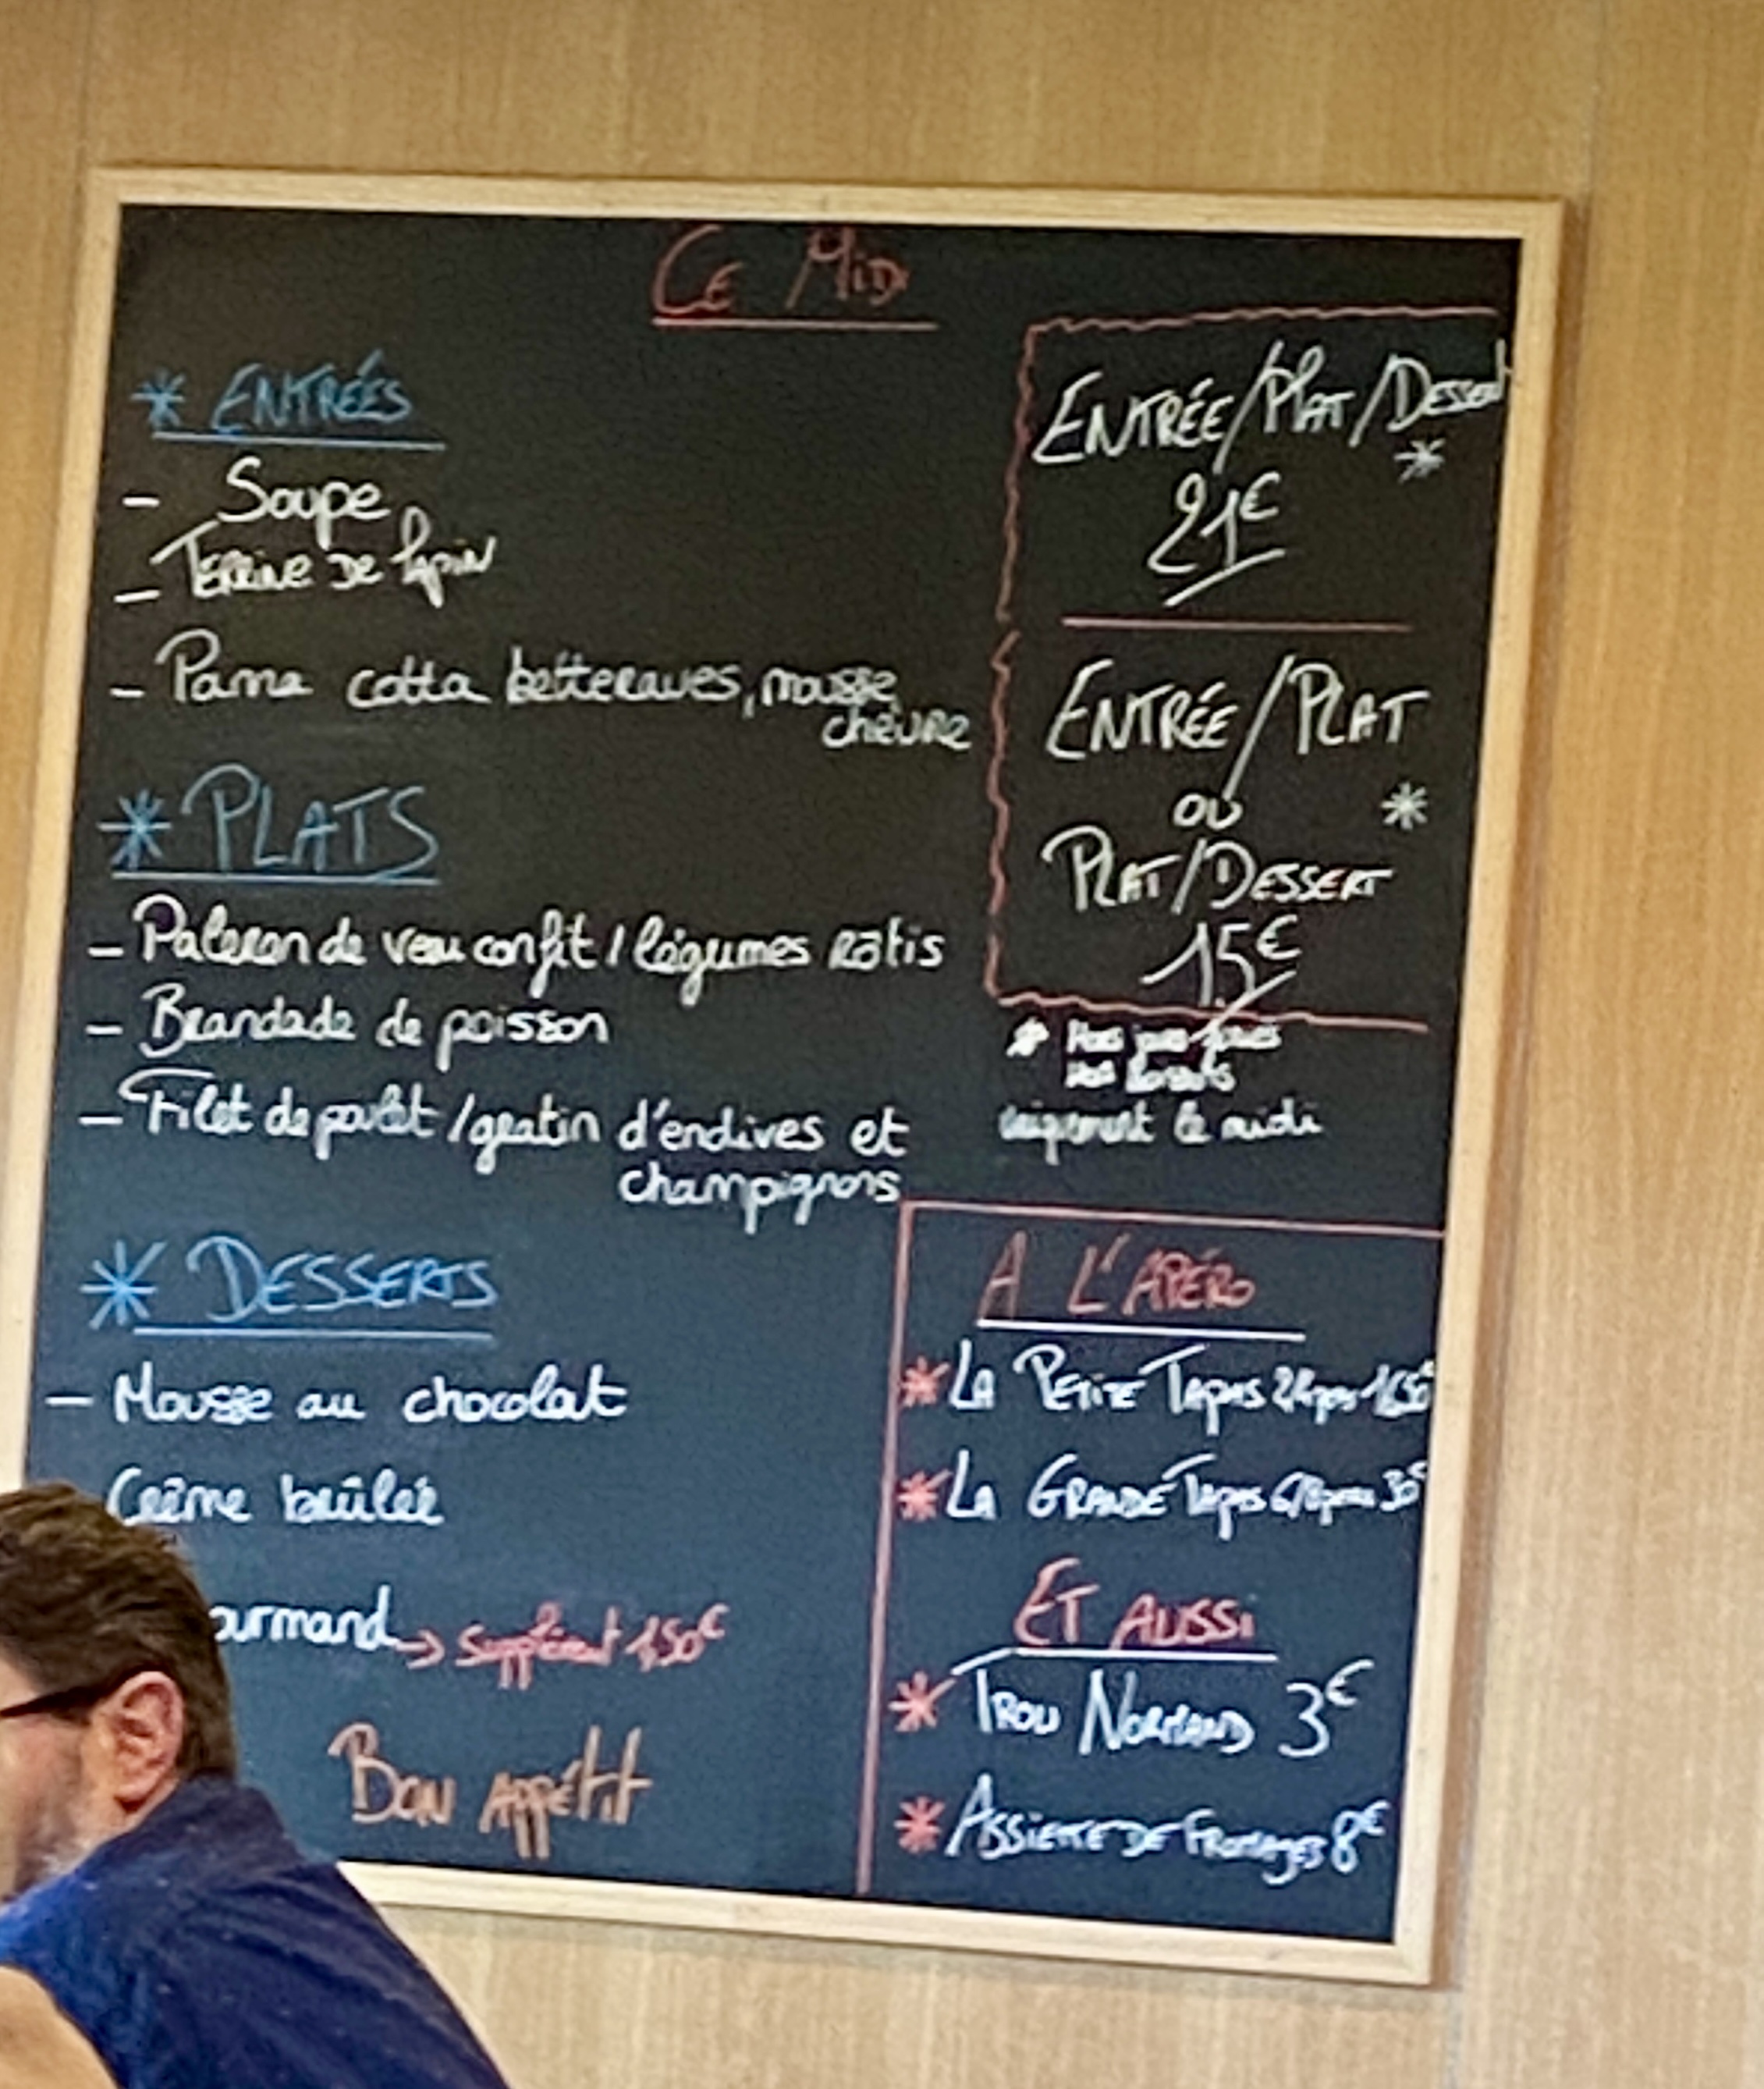 Ce Midi
* ENTRÉES
- Soupe
- Terrine de lapin
- Panna cotta betteraves, mousse
chèvre
* PLATS
- Paleron de veau confit / légumes rôtis
- Brandade de poisson
- Filet de poulet / gratin d'endives et
champignons
* DESSERTS
- Mousse au chocolat
Crème brûlée
ourmand → supplément 1,50€
Bon Appétit
ENTRÉE/PLAT/DESSERT
*
21€
ENTRÉE/PLAT
ou *
PLAT/DESSERT
15€
* Hors jours fériés
uniquement le midi
A L'APÉRO
* LA PETITE Tapas 16,50€
* LA GRANDE Tapas 30€
ET AUSSI
* TROU NORMAND 3€
* ASSIETTE DE FROMAGES 8€